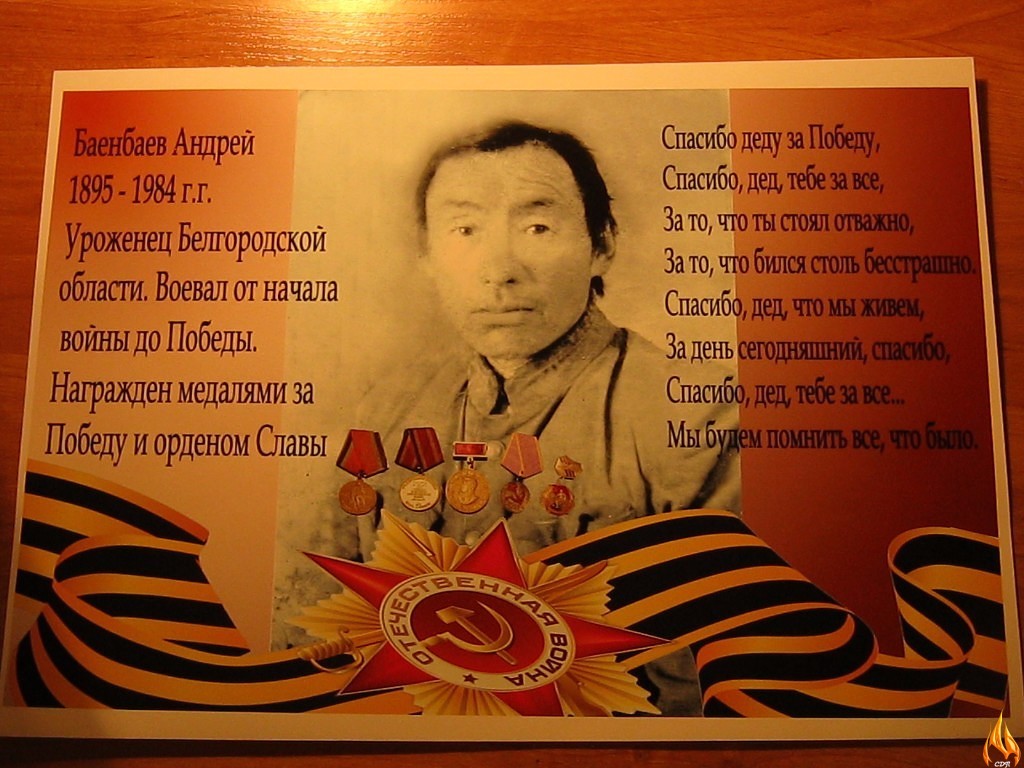 Баенбаев Андрей
1895 - 1984 г.г.
Уроженец Белгородской
области. Воевал от начала
войны до Победы.
Награжден медалями за
Победу и орденом Славы
Спасибо деду за Победу,
Спасибо, дед, тебе за все,
За то, что ты стоял отважно,
За то, что бился столь бесстрашно.
Спасибо, дед, что мы живем,
За день сегодняшний, спасибо,
Спасибо, дед, тебе за все...
Мы будем помнить все, что было.
ОТЕЧЕСТВЕННАЯ ВОЙНА
CDR